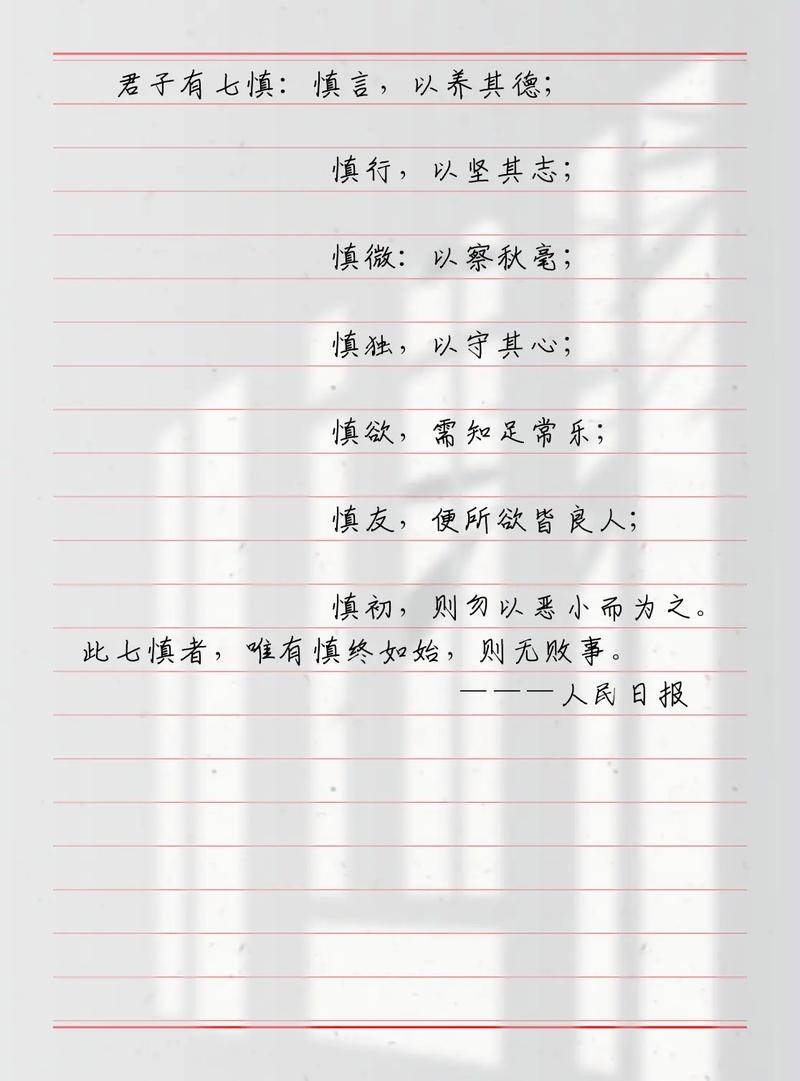 君子有七慎：慎言，以养其德；
慎行，以坚其志；
慎微：以察秋毫；
慎独，以守其心；
慎欲，需知足常乐；
慎友，便所欲皆良人；
慎初，则勿以恶小而为之。
此七慎者，唯有慎终如始，则无败事。
———人民日报